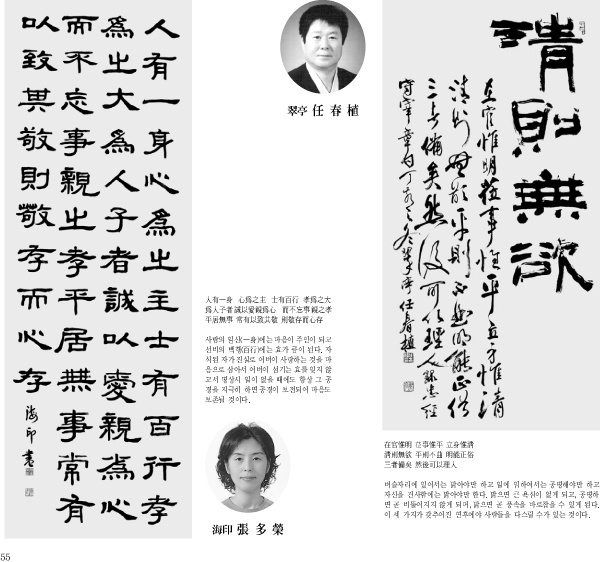 人有一身心爲之主士有百行孝
爲之大爲人子者誠以愛親爲心
而不忘事親之孝平居無事常有
以致其敬則敬存而心存
海印書
翠亭 任春植
人有一身 心爲之主 士有百行 孝爲之大
爲人子者 誠以愛親爲心 而不忘事 親之孝
平居無事 常有以致其敬 則敬存而心存
사람의 일신(一身)에는 마음이 주인이 되고
선비의 백행(百行)에는 효가 큼이 된다. 자
식된 자가 진실로 어버이 사랑하는 것을 마
음으로 삼아서 어버이 섬기는 효를 잊지 않
고서 평상시 일이 없을 때에도 항상 그 공
경을 지극히 하면 공경이 보전되어 마음도
보존될 것이다.
海印 張多榮
清則無欲
在官惟明莅事惟平立身惟清
清則無欲平則不曲明能正俗
三者備矣然後可以理人 錄忠經
守宰章句丁亥之冬翠亭任春植
在官惟明 莅事惟平 立身惟清
清則無欲 平則不曲 明能正俗
三者備矣 然後可以理人
벼슬자리에 있어서는 밝아야만 하고 일에 위하여서는 공평해야만 하고
자신을 건사함에는 맑아야만 한다. 맑으면 곧 욕심이 없게 되고, 공평하
면 곧 비뚤어지지 않게 되며, 밝으면 곧 풍속을 바로잡을 수 있게 된다.
이 세 가지가 갖추어진 연후에야 사람들을 다스릴 수가 있는 것이다.
55